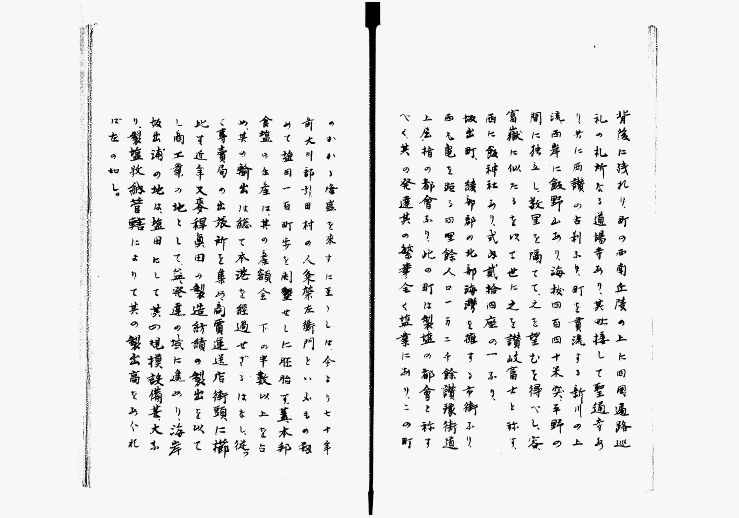 背後に残れり、町の西南丘陵の上に四国遍路巡
礼の札所なる道場寺あり其北接して聖通寺あ
り共に西讃の古刹なり、町を貫流する新川の上
流西岸に飯野山あり海抜四百四十米突平野の
間に独立し数里を隔てて之を望むを得べし、容
富嶽に似たるを以て世に之を讃岐富士と称す、
西に飯神社あり式内弐拾四座の一なり、
坂出町、綾歌郡の北部海灣を擁する市街なり
西丸亀を距る四里餘人口一万二千餘讃豫街道
上屈指の都會なり、此の町は製塩の都會と称す
べく其の発達其の繁華全く塩業にあり、この町
のかかる隆盛を来すに至りしは今より七十年
前大川郡引田村の人久米栄左衛門といふもの始
めて塩田一百町歩を開墾せしに胚胎す、蓋本邦
食塩の生産は其の産額全 下の半数以上を占
め其の輸出は総て本港を経過せざるはなし、従つ
て専賣局の出張所を集め商賣運送店街頭に櫛
比す近年又麥稈真田の製造紡績の製出を以て
し商工業の地として益発達の域に進めり海岸
坂出浦の地は塩田にして其の規模設備甚大な
り、製塩收納管轄によりて其の製出高をあぐれ
ば左の如し。